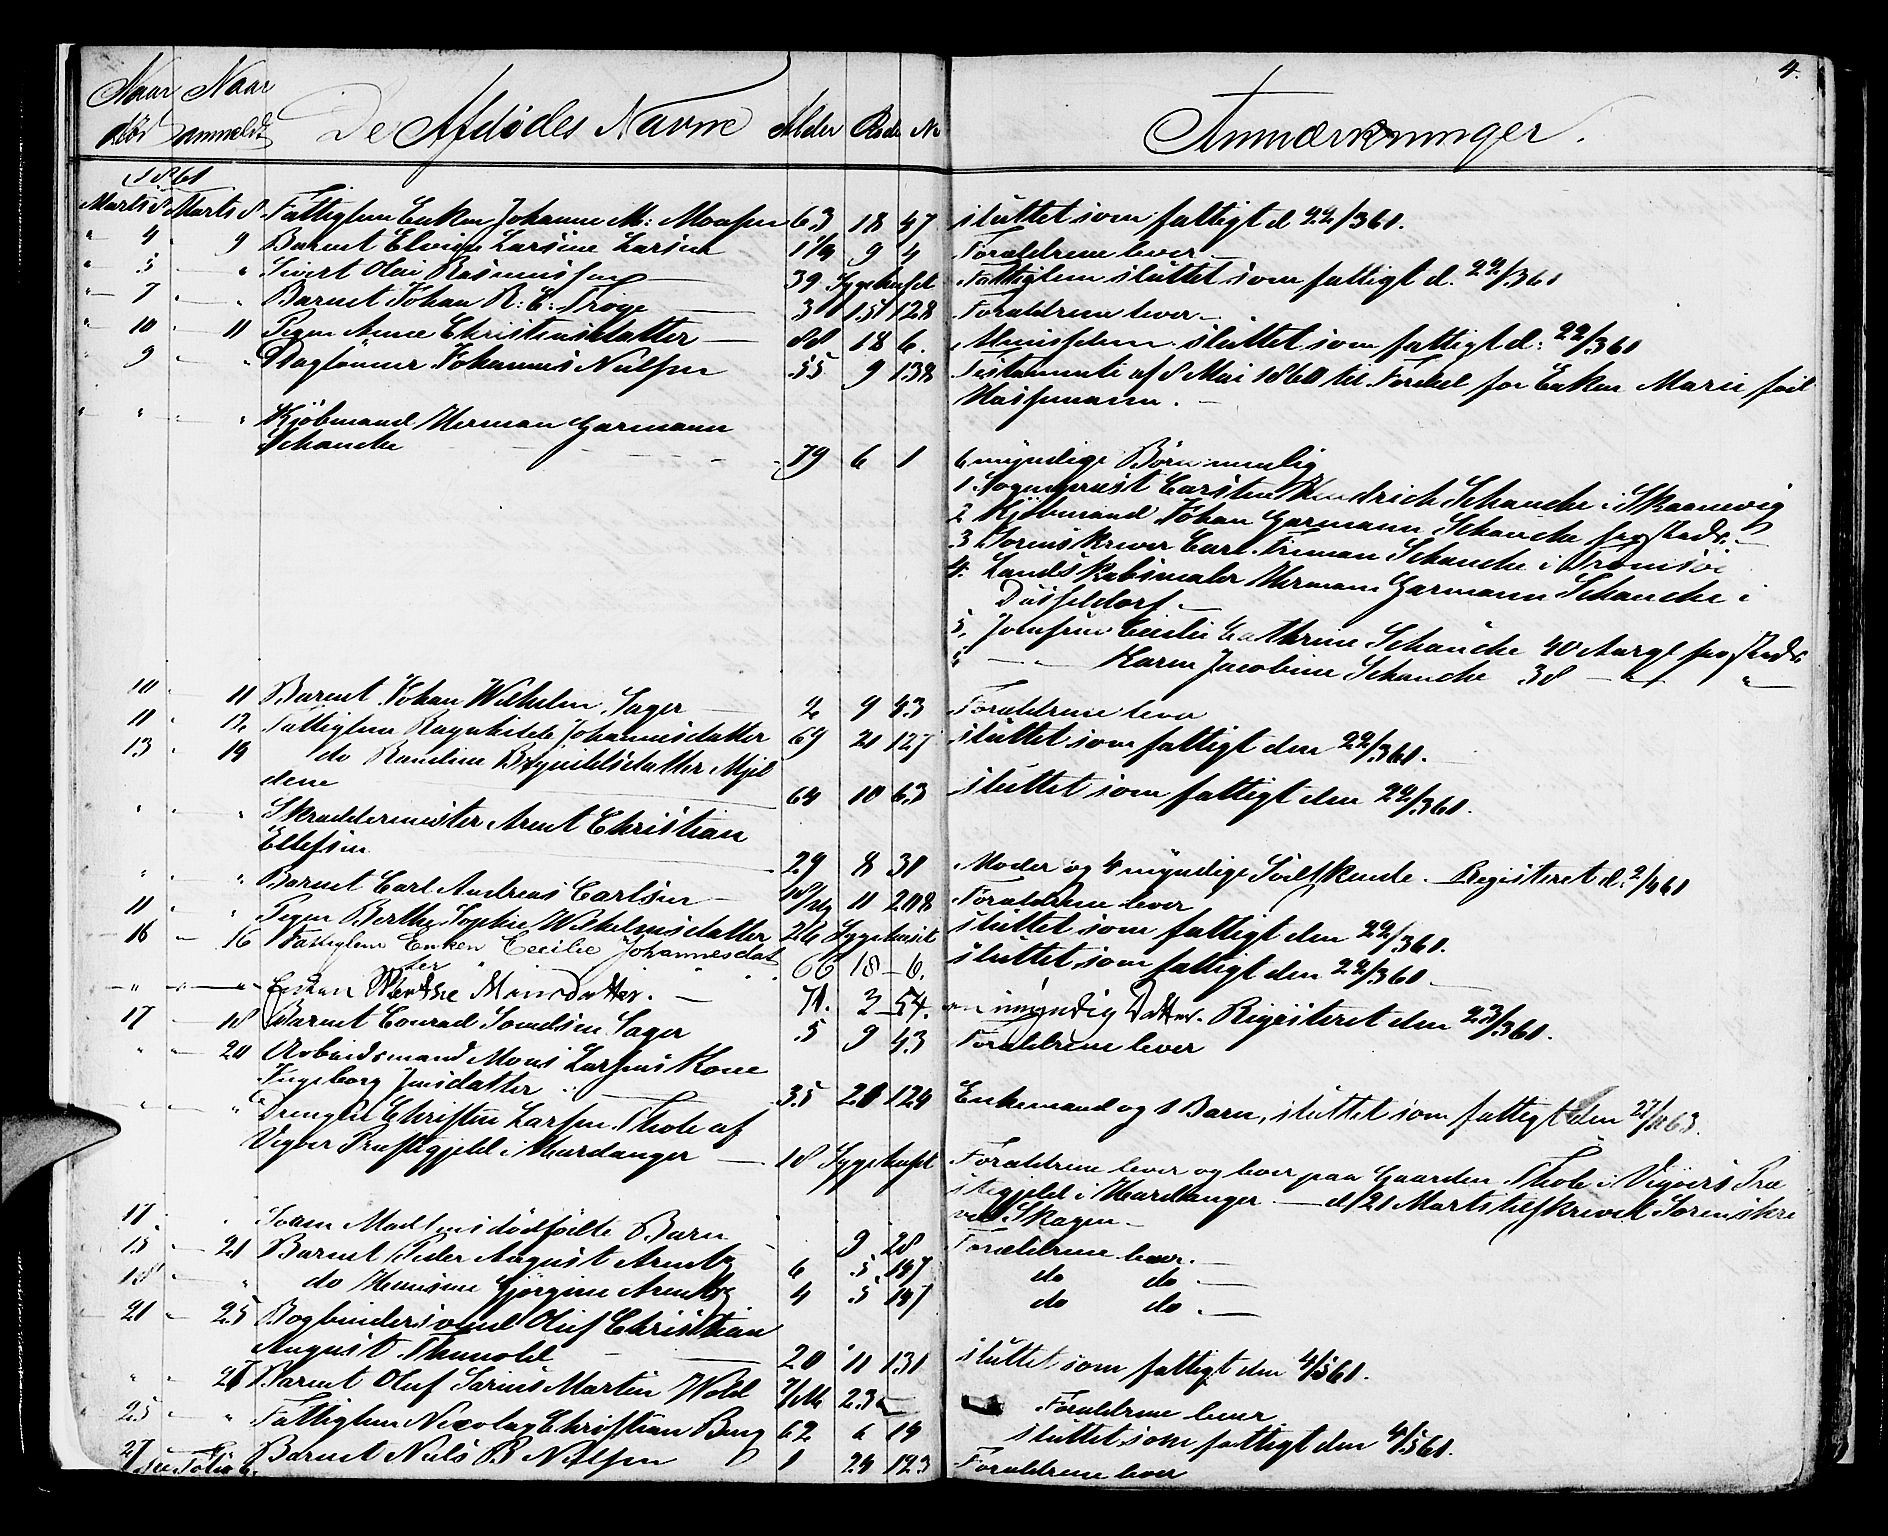 4.
Naar død Naar anmeldt De Afdödes Navne Alder Rode No Anmærkninger.
1861
Marts 8 Marts 8 Fattiglem Enken Johanne M: Monsen 63 18 47 sluttet som fattigt d 22/3 61.
" 4 " 9 Barnet Elvine Larsine Larsen 1 1/4 9 4 Forældrene lever
" 5 — " Sivert Olai Rasmussen 39 Sygehuset Fattiglem sluttet som fattigt d. 22/3 61
" 7 " — " Barnet Johan R: C: Troye 3 15 128 Forældrene lever —
" 10 " 11 Pigen Anne Christensdatter — 88 18 6. sluttet som fattigt d: 22/3 61
9 " " Dagleiner Johannes Nielsen 55 9 138 Testamente af 8 Mai 1860 til Fordel for Enken Marie föd
Hassemann. —
" " " Kjöbmand Herman Garmann
Schancke 79 6 1 6 myndige Börn nemlig
1. Sogneprest Carsten Hendrich Schancke i Skaanevig
2 Kjöbmand Johan Garmann Schancke her Stads. —
3 Sorenskriver Carl Friman Schancke i Tromsöe
4. Landskabsmaler Herman Garmann Schancke i
Düsseldorf —
5. Jomfrue Cecilie Cathrine Schancke 40 Aar gl her Stads
6 — " Karen Jacobine Schancke 38 — " —
10 " 11 Barnet Johan Wilhelm Sager — 2 9 43 Forældrene lever
11 " 12 Fattiglem Ragnhilde Johannesdatter 69 21 127 sluttet som fattigt den 22/3 61.
13 " 14 do Randine Brynildsdatter Mjel
dene 64 10 63 sluttet som fattigt den 22/3 61.
" " " Skreddermester Arent Christian
Ellefsen 29 8 30 Moder og 4 myndige Södskende. Registeret d. 2/4 61
" " " Barnet Carl Andreas Carlsen — 11 208 Forældrene lever
11 " " Pigen Berthe Sophie Wilhelmsdatter 26 Sygehuset sluttet som fattigt den 22/3 61.
16 — 16 Fattiglem Enken Cecilie Johannesdat
ter 66 18 — 6. sluttet som fattigt den 22/3 61 —
— " — " Enken Berthe Monsdatter. — 71. 2 54. en umyndig Datter. Registeret den 23/3 61.
17 — 18 Barnet Conrad Sager 5 9 43 Forældrene lever
" — 20 Arbeidsmand Mons Larsens Kone
Ingeborg Jensdatter 35 20 124 Enkemand og 1 Barn, sluttet som fattigt den
" " Drengen Christen Larsen Thole af
Vigöer Præstegjeld i Hardanger — 18 Sygehuset Forældrene lever og boer paa Gaarden Thole i Vigöers Præ
stegjeld i Hardanger — d/21 Marts tilskrevet Sorenskri
ver Skagen —
17 " dödfödte Barn 9 28 Forældrene lever. —
15 — 21 Barnet Peder August Arentz 6 5 197 do do —
18 — " do Hansine Gjörgine Arentz 4 5 197 do do. —
21 " 25 Bogbindersvend Oluf Christian
August Thunold — 20 11 131 sluttet som fattigt den 4/5 61.
" " 26 Barnet Oluf Sörine Martin Wold 7/M 23 — Forældrene lever
25 — " Fattiglem Nicolay Christian Berg 62 6 19 sluttet som fattigt den 4/5 61.
27 Barnet Niels B Nilsen 1 24 123 Forældrene lever
See Folio 6.